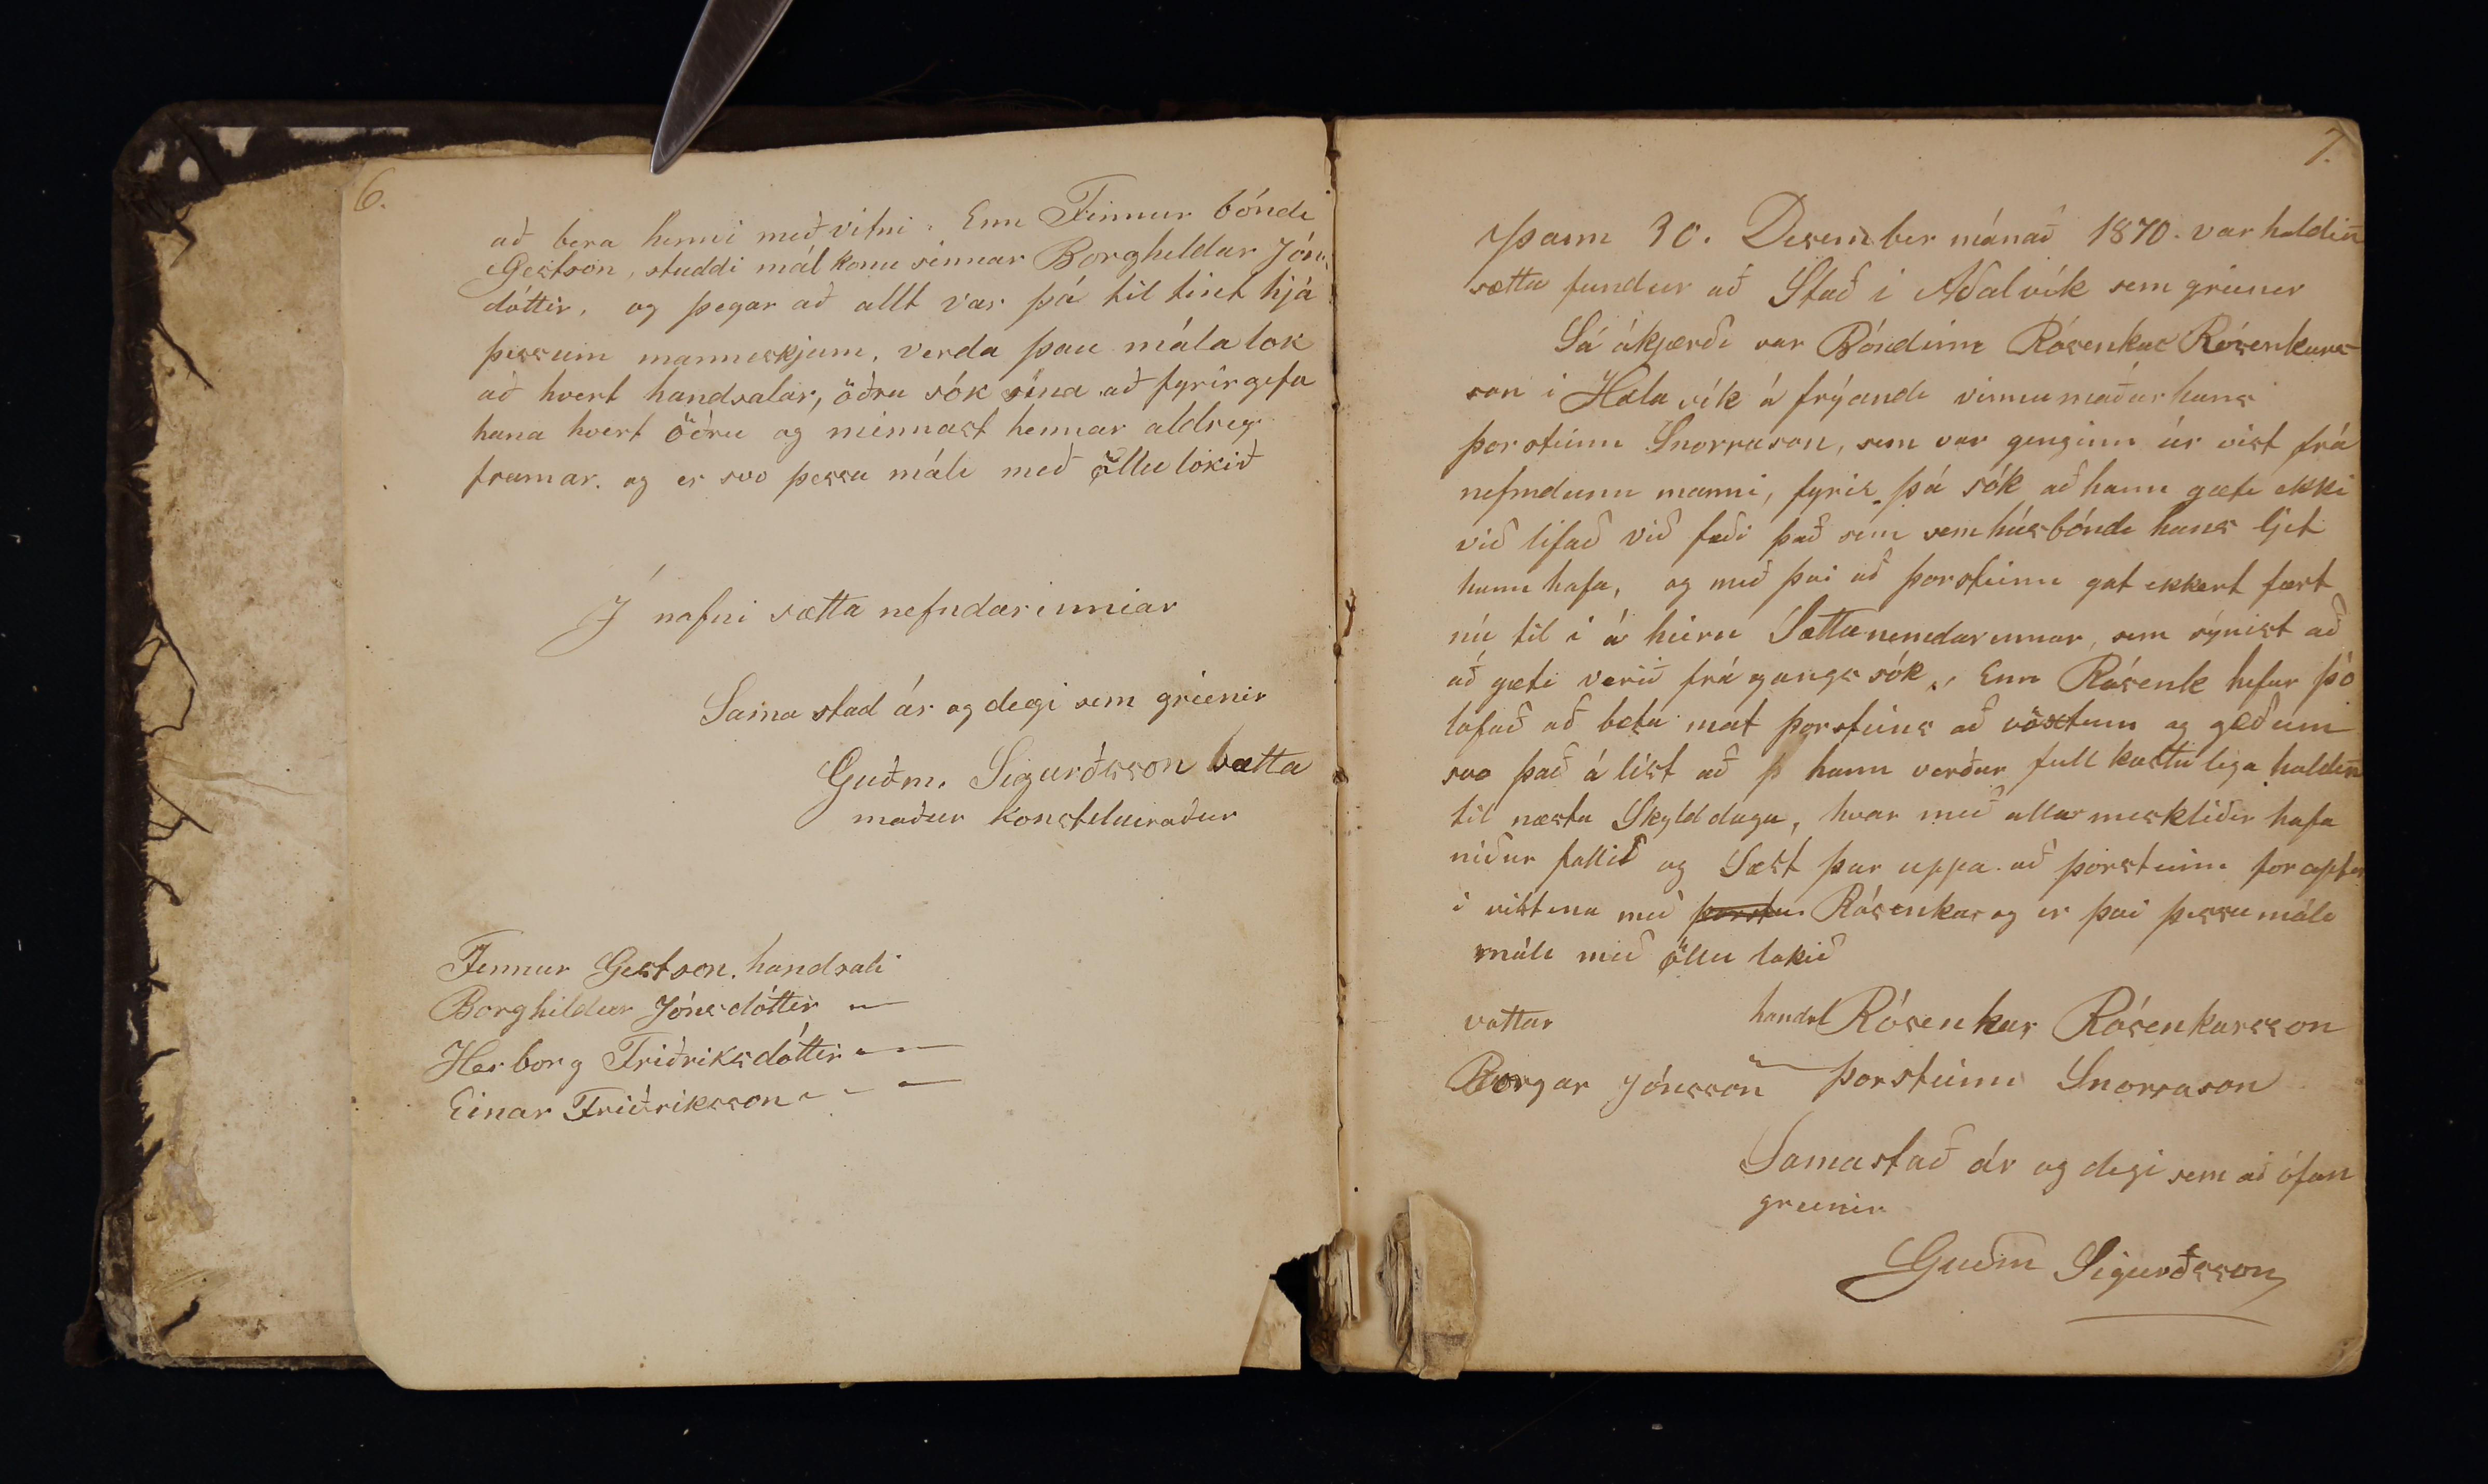 6.
að bera henni með vitni. Enn Finnur bónde
Gestson, studdi mál konu sinnar Borghildar Jóns
dóttir, og þegar að allt var þá til tint hjá
þessum manneskjum, verda þau mála lok
að hvert handsalar, öðru sók sína að fyrirgefa
hana hvert öðru og minnast hennar aldreg
framar. og er svo þessu máli með öllu lokið
Í nafni sætta nefndarinnar
Sama stad ár og degi sem greinir
Guðm. Sigurðsson sætta
maður konstitueraður
Finnur Gestson. handsali
Borghildur Jónsdóttir —
Herborg Friðriksdóttir — —
Einar Friðriksson - - —
7.
Þann 30. Desember mánað 1870. var haldin̄
sætta fundur að Stað i Aðalvík sem greiner
Sá ákjærði var Bóndinn Rósenkar Rósenkars-
son i Hælavík á frýandi vinnumaður hans
þorsteinn Snorrason, sem var genginn úr vist frá
nefndunn manni, fyrir þá sók að hann gæti ekki
við lifað við fæði það sem sem húsbónde hans ljet
hann hafa, og með þvi að þorsteinn gat ekkert fært
nú til i á heiru Sættanemdarinnar, sem sýnist að
að gæti verið frá gangs sók, Enn Rósenk hefur þó
lofað að beta mat þorsteins að vöxtum og gæðum
svo það á líst að þ hann verður full kostuliga haldin̄
til næstu Skylddaga, hvar með allar mesklíðir hafa
niður fallið og Sæst þar uppa að þorsteinn for apter
i vistena með þorstei Rósenkar og er þvi þessu máli
máli með öllu lokið
vottar handsl Rósenkar Rósenkarsson
Borgar Jónsson — þorsteinn Snorrason
Samastað ár og degi sem að ófan
greinir
Guðm Sigurðsson